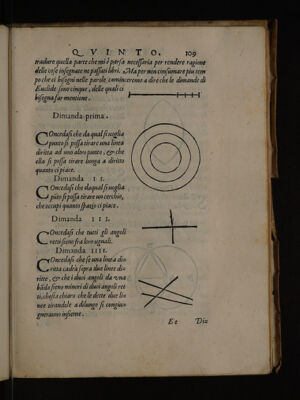 QVINTO. 109
tradure quella parte che mi è parsa necessaria per rendere ragione
delle cose insegnate ne passati libri. Ma per non consumare piu tem
po che ci bisogni nelle parole, cominceremo a dire che le dimande di
Euclide sono cinque, delle quali ci
bisogna far mentione.
Dimanda prima.
COncedasi che da qual si voglia
punto si possa tirare una linea
diritta ad uno altro punto, & che
ella si possa tirare lunga a diritto
quanto ci piace.
Dimanda II.
COncedasi che da qual si voglia
pũto si possa tirare un cerchio,
che occupi quanto spatio ci piace.
Dimanda III.
COncedasi che tutti gli angoli
retti sieno fra loro uguali.
Dimanda IIII.
COncedasi che se una linea di
ritta cadrà sopra due linee di
ritte, & che i duoi angoli da una
bãda sieno minori di duoi angoli ret
ti, che sia chiaro che le dette due li
nee tirandole a dilungo si congiu
gneranno insieme.
Et Diz